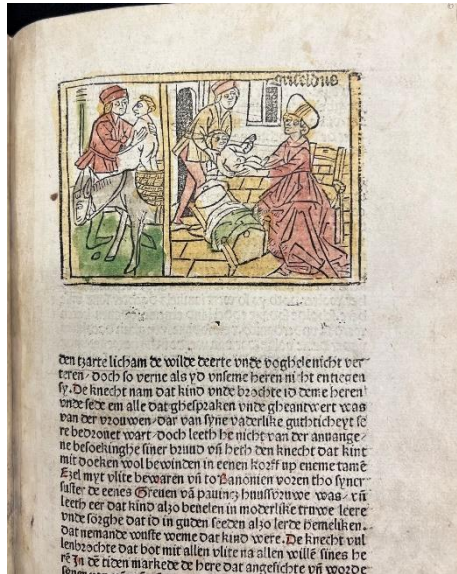 griseldis
den tzarte licham de wilde deerte vnde voghele nicht ver
teren/ doch so verne als yd vnseme heren nicht entiegen
sy. De knecht nam dat kind vnde brochte id deme heren/
vnde sede em alle dat ghespraken vnde gheantwert was
van der vrouwen/ dar van syne vaderlike guthticheyt so
re bedronet wart/ doch leeth he nicht van der anuange/
ne besoekinghe siner bruud vñ heth den knecht dat kint
mit doeken wol bewinden in eenen korff up eneme tamē
Ezel myt vlite bewaren vñ to Banonien voren tho syner
suster de eenes Greuen vā pauincz hnussvruwe was/ vñ
leeth eer dat kind alzo beuelen in moderlike truwe leere
vnde sorghe dat id in guden seeden alzo lerde hemeliken/
dat nemande wuste weme dat kind were. De knecht vul
lenbrochte dat bot mit allen vlite na allen willē sines he
rē In dē tiden markede de here dat angesichte vñ worde